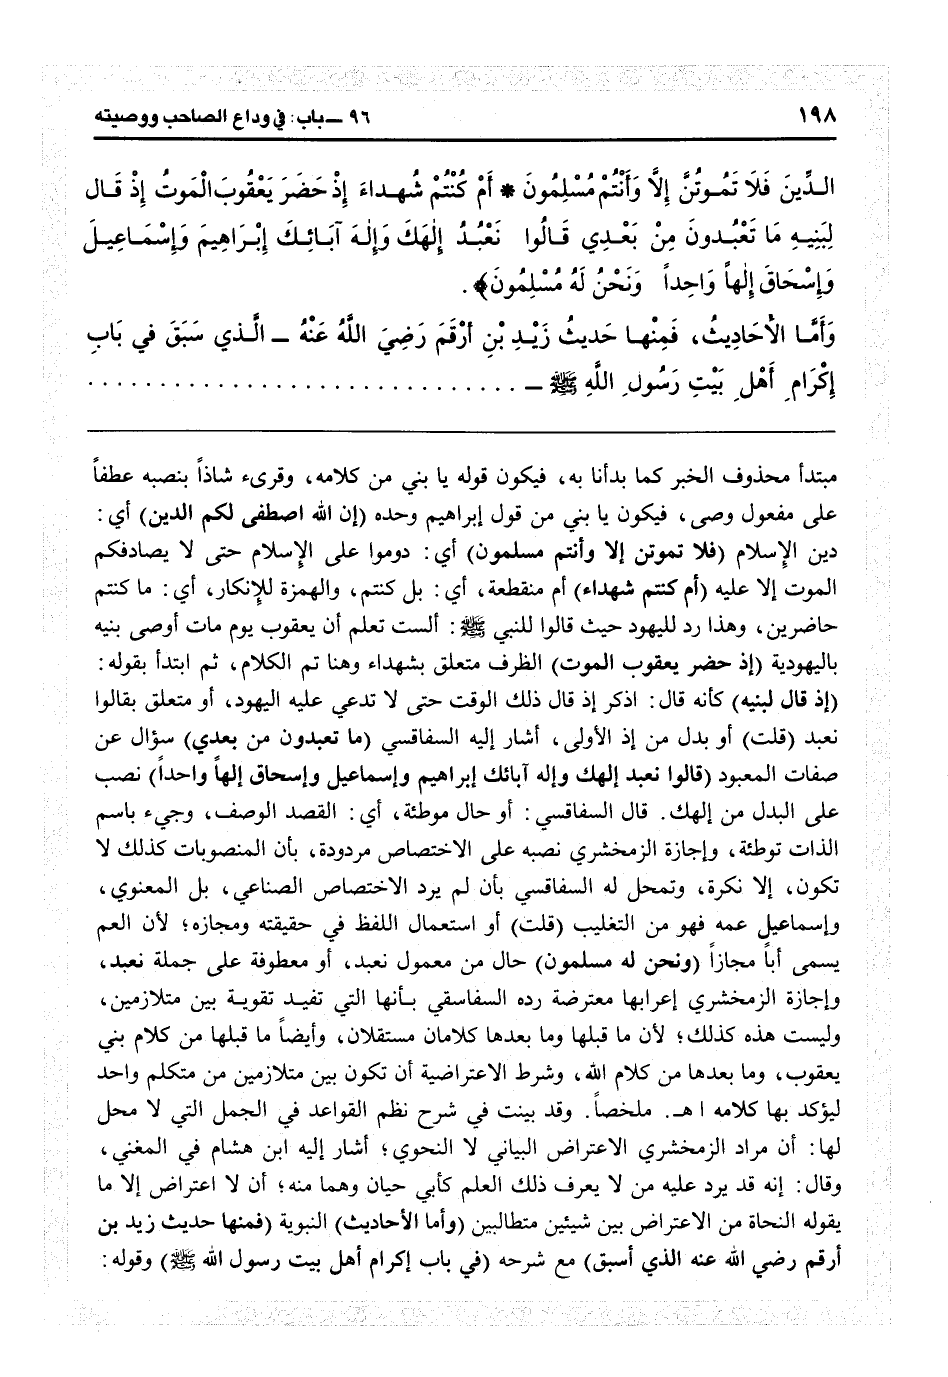 ١٩٨
٩٦ ــ باب: في وداع الصاحب ووصيته
الـدِّينَ فَلَا تَمُـوتُنَّ إِلَّا وَأَنْتُمْ مُسْلِمُونَ * أَمْ كُنْتُمْ شُهـداءَ إِذْ حَضَرَ يَعْقُوبَ الْمَوتُ إِذْ قَـال
لِبَنِيـهِ مَا تَعْبُـدونَ مِنْ بَعْـدِي قَـالُوا نَعْبُـدُ إِلٰهَكَ وَإِلٰهَ آبَـائِـكَ إِبْـرَاهِيمَ وَإِسْمَـاعِيـلَ
وَإِسْحَاقَ إِلٰهاً وَاحِداً وَنَحْنُ لَهُ مُسْلِمُونَ﴾.
وَأَمَّـا الأَحَادِيثُ، فَمِنْهـا حَديثُ زَيْـدِ بْنِ أَرْقَمَ رَضِيَ اللَّهُ عَنْهُ ــ الَّـذي سَبَقَ في بَابِ
إِكْرَامِ أَهْلِ بَيْتِ رَسُولِ اللَّهِ ﷺ ــ ..............................
مبتدأ محذوف الخبر كما بدأنا به، فيكون قوله يا بني من كلامه، وقرىء شاذاً بنصبه عطفاً
على مفعول وصى، فيكون يا بني من قول إبراهيم وحده (إن الله اصطفى لكم الدين) أي:
دين الإسلام (فلا تموتن إلا وأنتم مسلمون) أي: دوموا على الإسلام حتى لا يصادفكم
الموت إلا عليه (أم كنتم شهداء) أم منقطعة، أي: بل كنتم، والهمزة للإنكار، أي: ما كنتم
حاضرين، وهذا رد لليهود حيث قالوا للنبي ﷺ: ألست تعلم أن يعقوب يوم مات أوصى بنيه
باليهودية (إذ حضر يعقوب الموت) الظرف متعلق بشهداء وهنا تم الكلام، ثم ابتدأ بقوله:
(إذ قال لبنيه) كأنه قال: اذكر إذ قال ذلك الوقت حتى لا تدعي عليه اليهود، أو متعلق بقالوا
نعبد (قلت) أو بدل من إذ الأولى، أشار إليه السفاقسي (ما تعبدون من بعدي) سؤال عن
صفات المعبود (قالوا نعبد إلهك وإله آبائك إبراهيم وإسماعيل وإسحاق إلهاً واحداً) نصب
على البدل من إلهك. قال السفاقسي: أو حال موطئة، أي: القصد الوصف، وجيء باسم
الذات توطئة، وإجازة الزمخشري نصبه على الاختصاص مردودة، بأن المنصوبات كذلك لا
تكون، إلا نكرة، وتمحل له السفاقسي بأن لم يرد الاختصاص الصناعي، بل المعنوي،
وإسماعيل عمه فهو من التغليب (قلت) أو استعمال اللفظ في حقيقته ومجازه؛ لأن العم
يسمى أباً مجازاً (ونحن له مسلمون) حال من معمول نعبد، أو معطوفة على جملة نعبد،
وإجازة الزمخشري إعرابها معترضة رده السفاسقي بـأنها التي تفيـد تقويـة بين متلازمين،
وليست هذه كذلك؛ لأن ما قبلها وما بعدها كلامان مستقلان، وأيضاً ما قبلها من كلام بني
يعقوب، وما بعدها من كلام الله، وشرط الاعتراضية أن تكون بين متلازمين من متكلم واحد
ليؤكد بها كلامه ا هـ. ملخصاً. وقد بينت في شرح نظم القواعد في الجمل التي لا محل
لها: أن مراد الزمخشري الاعتراض البياني لا النحوي؛ أشار إليه ابن هشام في المغني،
وقال: إنه قد يرد عليه من لا يعرف ذلك العلم كأبي حيان وهما منه؛ أن لا اعتراض إلا ما
يقوله النحاة من الاعتراض بين شيئين متطالبين (وأما الأحاديث) النبوية (فمنها حديث زيد بن
أرقم رضي الله عنه الذي أسبق) مع شرحه (في باب إكرام أهل بيت رسول الله ﷺ) وقوله: